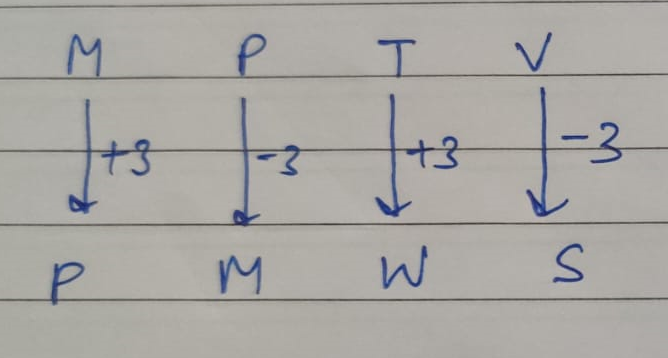 M P T V
+3 -3 +3 -3
P M W S